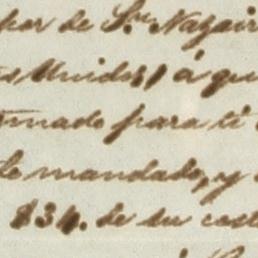 por de Sn. Nazair
s Unidos, á qu
mado para ti
le mandado, y
$34. de su cost